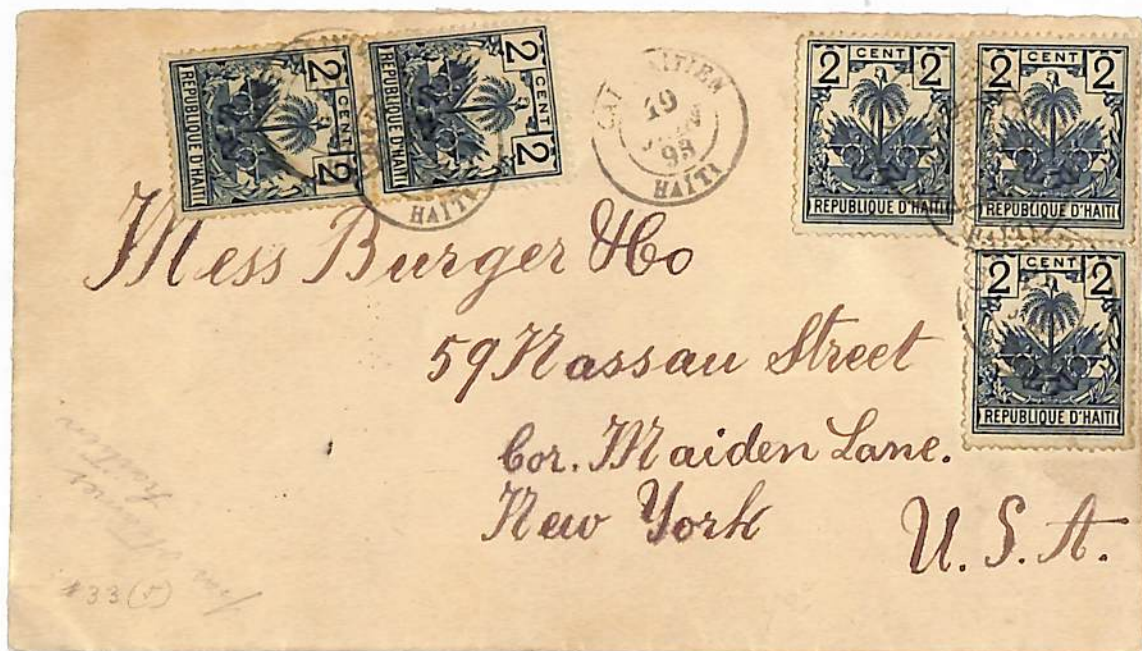 2 CENT 2
REPUBLIQUE D'HAITI
2 CENT 2
REPUBLIQUE D'HAITI
HAITI
19
98
HAITI
2 CENT 2
REPUBLIQUE D'HAITI
2 CENT 2
REPUBLIQUE D'HAITI
HAITI
2 CENT 2
REPUBLIQUE D'HAITI
Mess Burger & Co
59 Nassau Street
Cor. Maiden Lane.
New York
U. S. A.
#33(5)